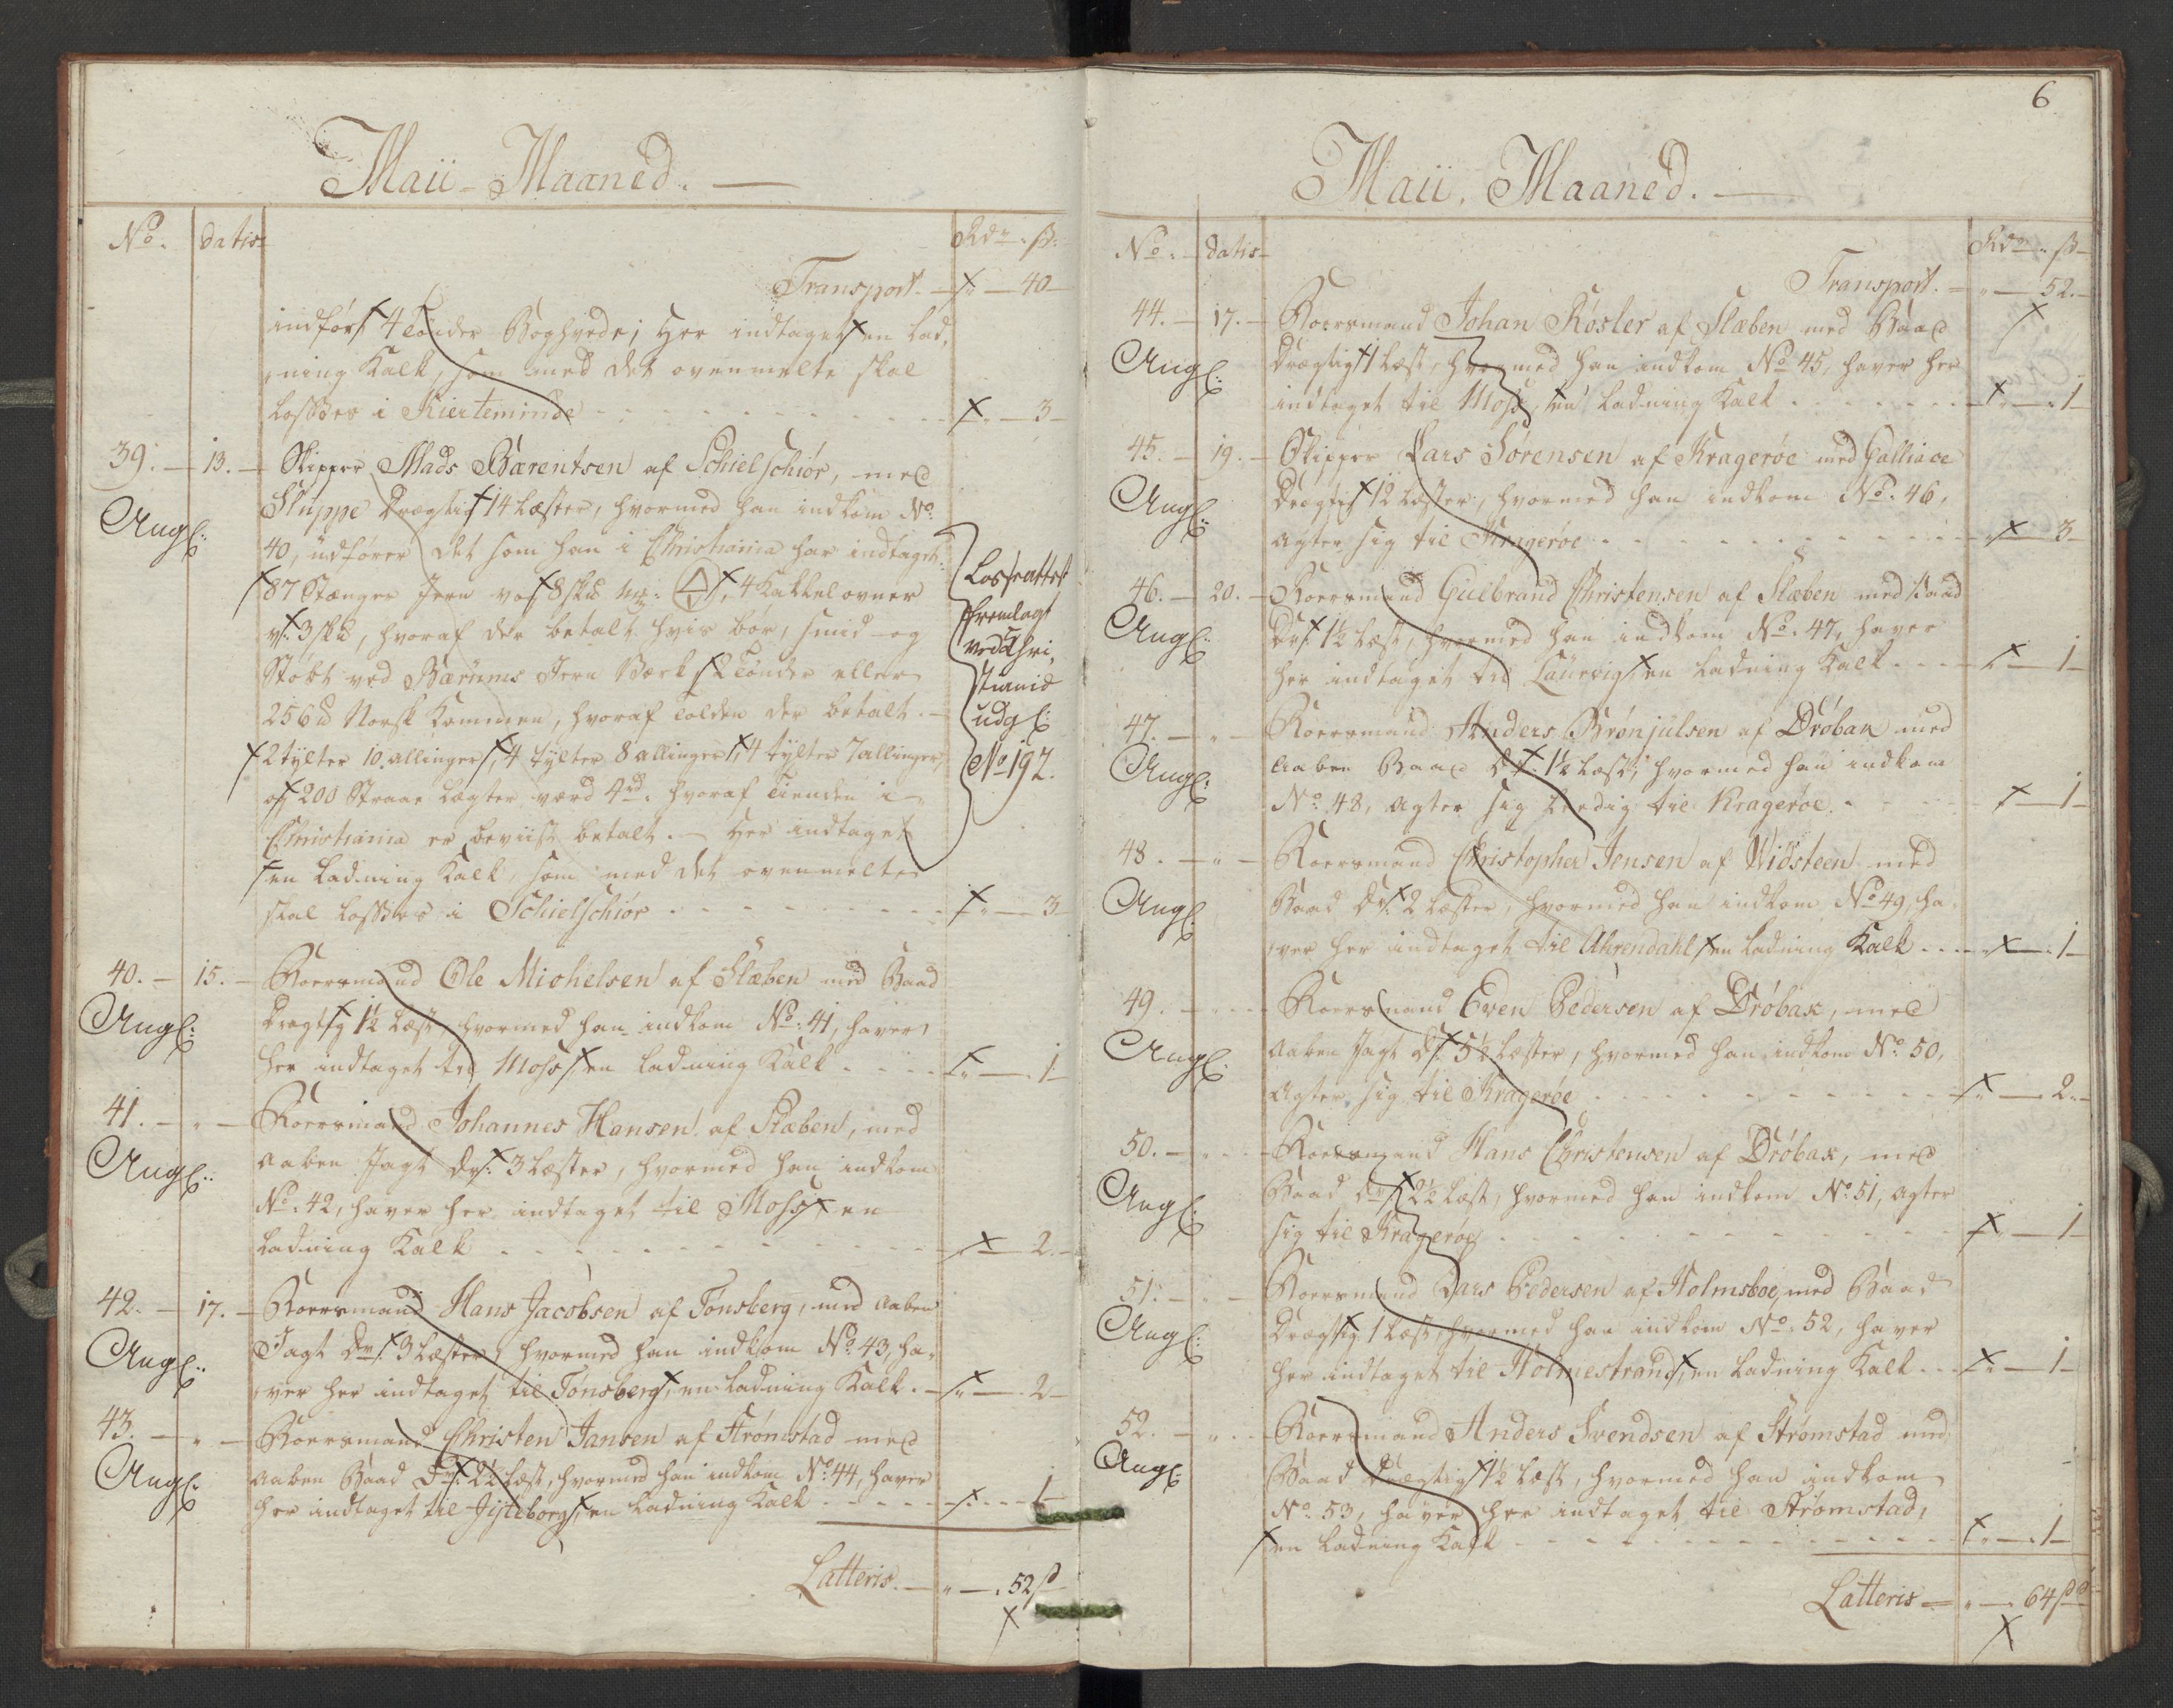 Maii-Maaned.
No. datis Rdr. ß.
Transport. - " - 40
indført 4 Tønder Boghvede; Her indtaget en Lad-
ning Kalk, som med det ovenmelte skal
losses i Kierteminde - " - 3
39. - 13. - Skipper Mads Bærentsen af Schielschiør, med
Angl: Sluppe Drægtig 14 Læster, hvormed han indkom No.
40, udfører det som han i Christiania har indtaget:
87 Stænger Jern 4 Kakkelovner
3 hvoraf der betalt hvis bør, smid- og
Støbt ved Bærums Jern Værk, 2 Tønder eller
256 Norsk Kommen, hvoraf Tolden der betalt.-
2 tylter 10 allinger, 4 tylter 8 allinger, 4 tylter 7 allinger,
og 200 Straae Lægter værd 4 rd. hvoraf Tienden i
Christiania er beviist betalt. - Her indtaget
en Ladning Kalk, som med det ovenmelte
skal losses i Schielschiør - " - 3
Losseattest
fremlagt
ved Chri-
stiania
udg:
No 192.
40. - 15. - Roersmand Ole Michelsen af Slæben med Baad
Angl: Drægtig 1½ Læst, hvormed han indkom No. 41, haver
her indtaget til Moss en Ladning Kalk - " - 1
41. - " - Roersmand Johannes Hansen af Slæben, med
Angl: aaben Jagt Dr: 3 Læster, hvormed han indkom
No. 42, haver her indtaget til Moss, en
Ladning Kalk - " - 2
42. - 17. - Roersmand Hans Jacobsen af Tønsberg, med aaben
Angl: Jagt Dr: 3 Læster, hvormed han indkom No. 43, ha-
ver her indtaget til Tønsberg, en Ladning Kalk. - " - 2
43. - " - Roersmand Christen Jansen af Strømstad med
Angl: aaben Baad Dr: 2½ Læst, hvormed han indkom No. 44, haver
her indtaget til en Ladning Kalk - " - 1
Latteris. - " - 52 ß
6
Maii. Maaned.
No. datis Rdr. ß
Transport. - " - 52.
44. - 17. - Roersmand Johan Røsler af Slæben med Baad
Angl: Drægtig 1 Læst, hvormed han indkom No. 45, haver her
indtaget til Moss, en Ladning Kalk - " - 1
45. - 19. - Skipper Lars Sørensen af Kragerøe med Galliace
Angl: Drægtig 12 Læster, hvormed han indkom No. 46,
agter sig til Kragerøe - " - 3
46. - 20. - Roersmand Gulbrand Christensen af Slæben med Baad
Angl: Dr: 1½ Læst, hvormed han indkom No. 47, haver
her indtaget til Laurvig, en Ladning Kalk - " - 1
47. - " - Roersmand Anders Brønjulsen af Drøbak med
Angl: aaben Baad Dr: 1½ Læst, hvormed han indkom
No. 48, agter sig ledig til Kragerøe. - " - 1
48. - " - Roersmand Christopher Jensen af Widsteen med
Angl: Baad Dr: 2 Læster, hvormed han indkom No 49, ha-
ver her indtaget til Ahrendahl, en Ladning Kalk - " - 1
49. - " - Roersmand Even Pedersen af Drøbak, med
Angl: aaben Jagt Dr: 5½ Læster, hvormed han indkom No. 50,
agter sig til Kragerøe - " - 2.
50. - " - Roersmand Hans Christensen af Drøbak, med
Angl: Baad Dr: 2½ Læst, hvormed han indkom No. 51, agter
sig til Kragerøe - " - 1
51. - " - Roersmand Lars Pedersen af Holmsboe, med Baad
Angl: Drægtig 1 Læst, hvormed han indkom No. 52, haver
her indtaget til Holmestrand, en Ladning Kalk - " - 1
52. - " - Roersmand Anders Svendsen af Strømstad med
Angl: Baad Drægtig 1½ Læst, hvormed han indkom
No. 53, haver her indtaget til Strømstad,
en Ladning Kalk - " - 1
Latteris - " - 64 ß